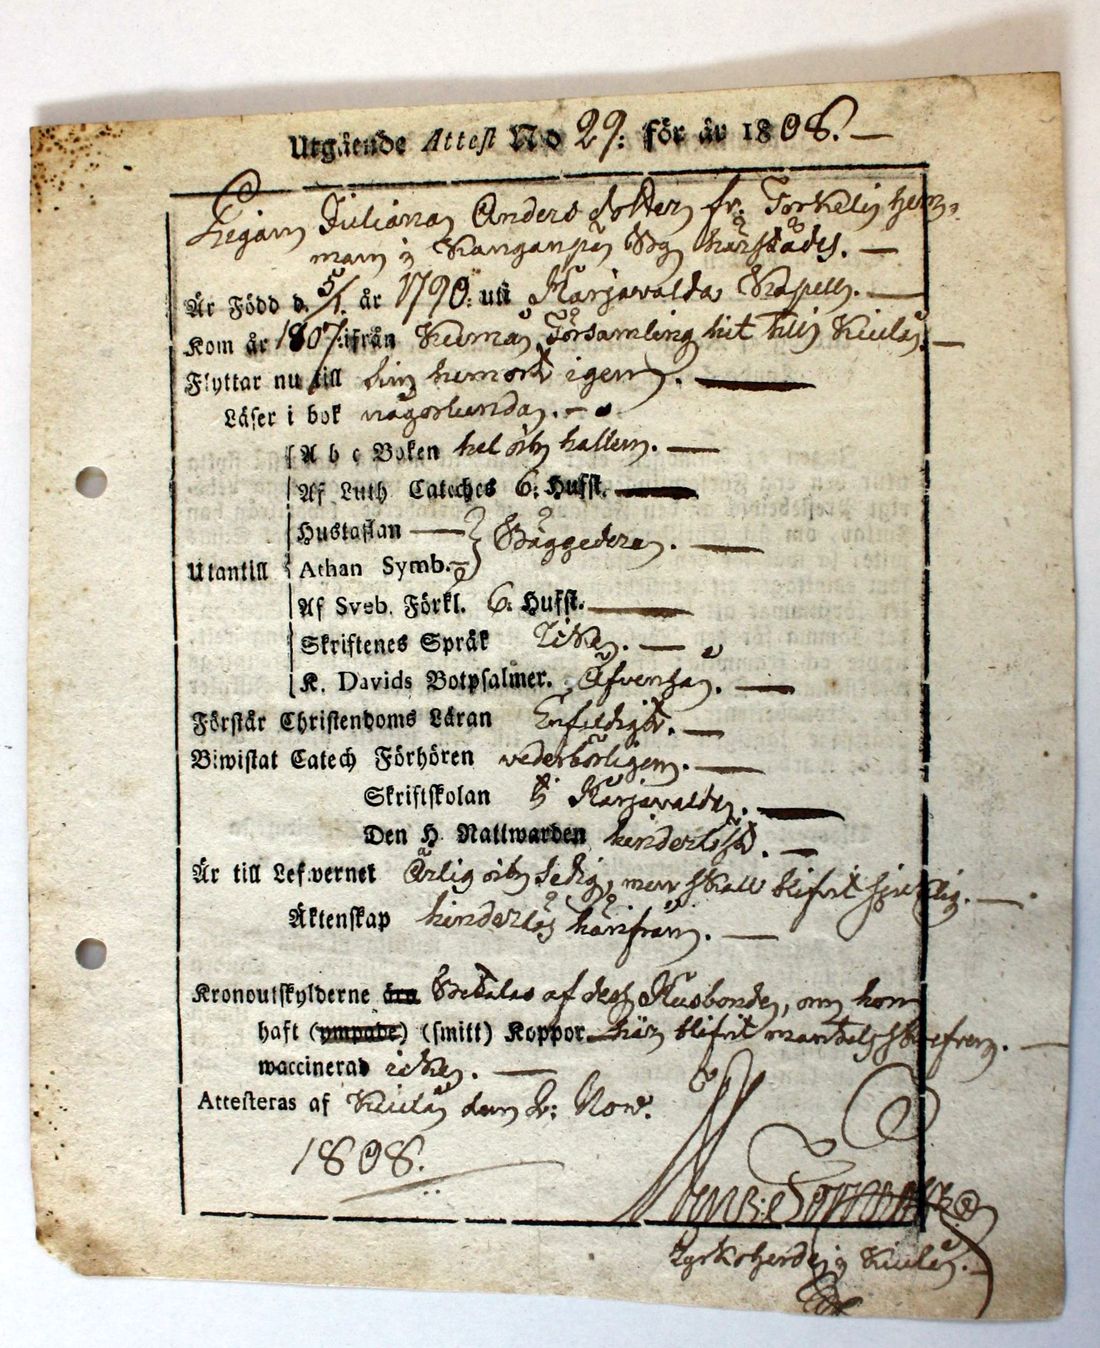 Utgående Attest No 29: för år 1808.
Pigan Juliana Anders dotter fr: Torkeli hem-
man i Kanganpä By härstädes.
Är Född d. 5/1. år 1790: uti Karjavalda Kapell.
Kom år 1807: ifrån Keuma Församling hit till Kiula.
Flyttar nu till sin hemort igen.
Läser i bok någorlunda.
A b c Boken hel och hållen.
Af Luth Cateches 6: Hufst.
Hustaflan
Utantill Athan Symb. Bäggedera.
Af Sveb. Förkl. 6: Hufst.
Skriftenes Språk Icke.
K. Davids Botpsalmer. Äfvenså.
Förstår Christendoms Läran Enfeldigt.
Biwistat Catech Förhören vederbörligen.
Skriftskolan i Karjavalda.
Den H. Nattwarden hinderlöst.
Är till Lefvernet Ärlig och Sedig, men skall blifvit
Äktenskap hinderlös härifrån.
Kronoutskylderne äro Betalas af dess Husbonde, om hon
haft (ympade) (smitt) Koppor här blifvit
waccinerad icke.
Attesteras af Kiula den 2: Nov.
1808.
Kyrkoherde i Kiula.